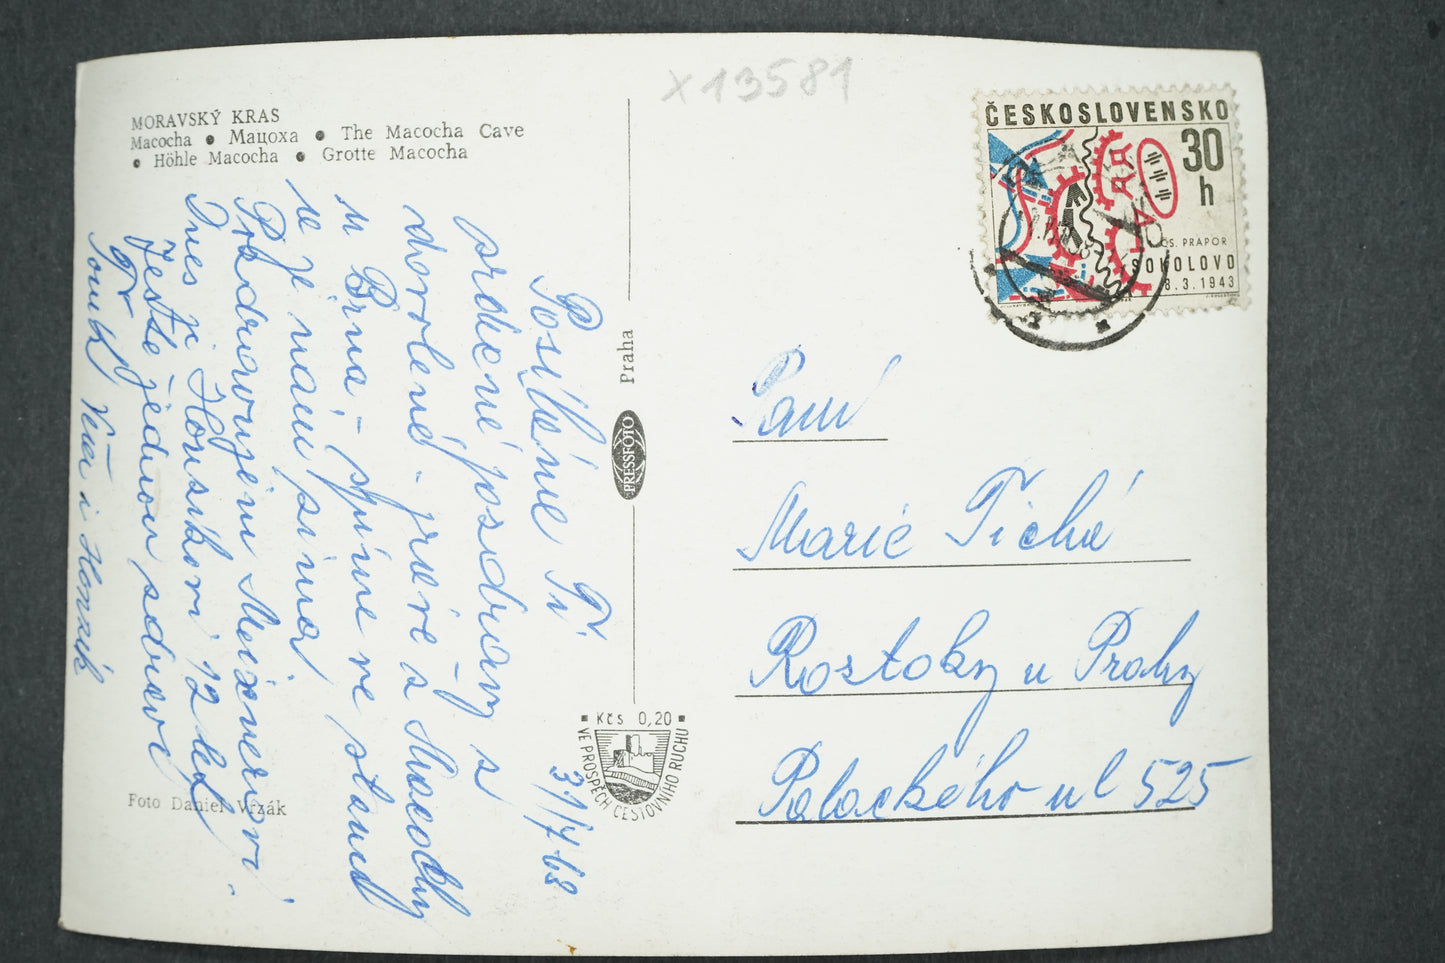 x13581
MORAVSKÝ KRAS
Macocha • Мацоха • The Macocha Cave
• Höhle Macocha • Grotte Macocha
31/7 68
Posíláme Ti
srdečné pozdravy z
dovolené - prvé z Macochy
u Brna, - spíme ve stanu
už je nám zima
Dnes je 12 let
Ještě jednou zdraví
Tě
i Honzík
Foto Daniel Vrzák
PRESSFOTO
Praha
Kčs 0,20
VE PROSPĚCH CESTOVNÍHO RUCHU
ČESKOSLOVENSKO
30
h
ČS. PRAPOR
SOKOLOVO
8.3.1943
Paní
Marie Tichá
Roztoky u Prahy
Palackého ul 525